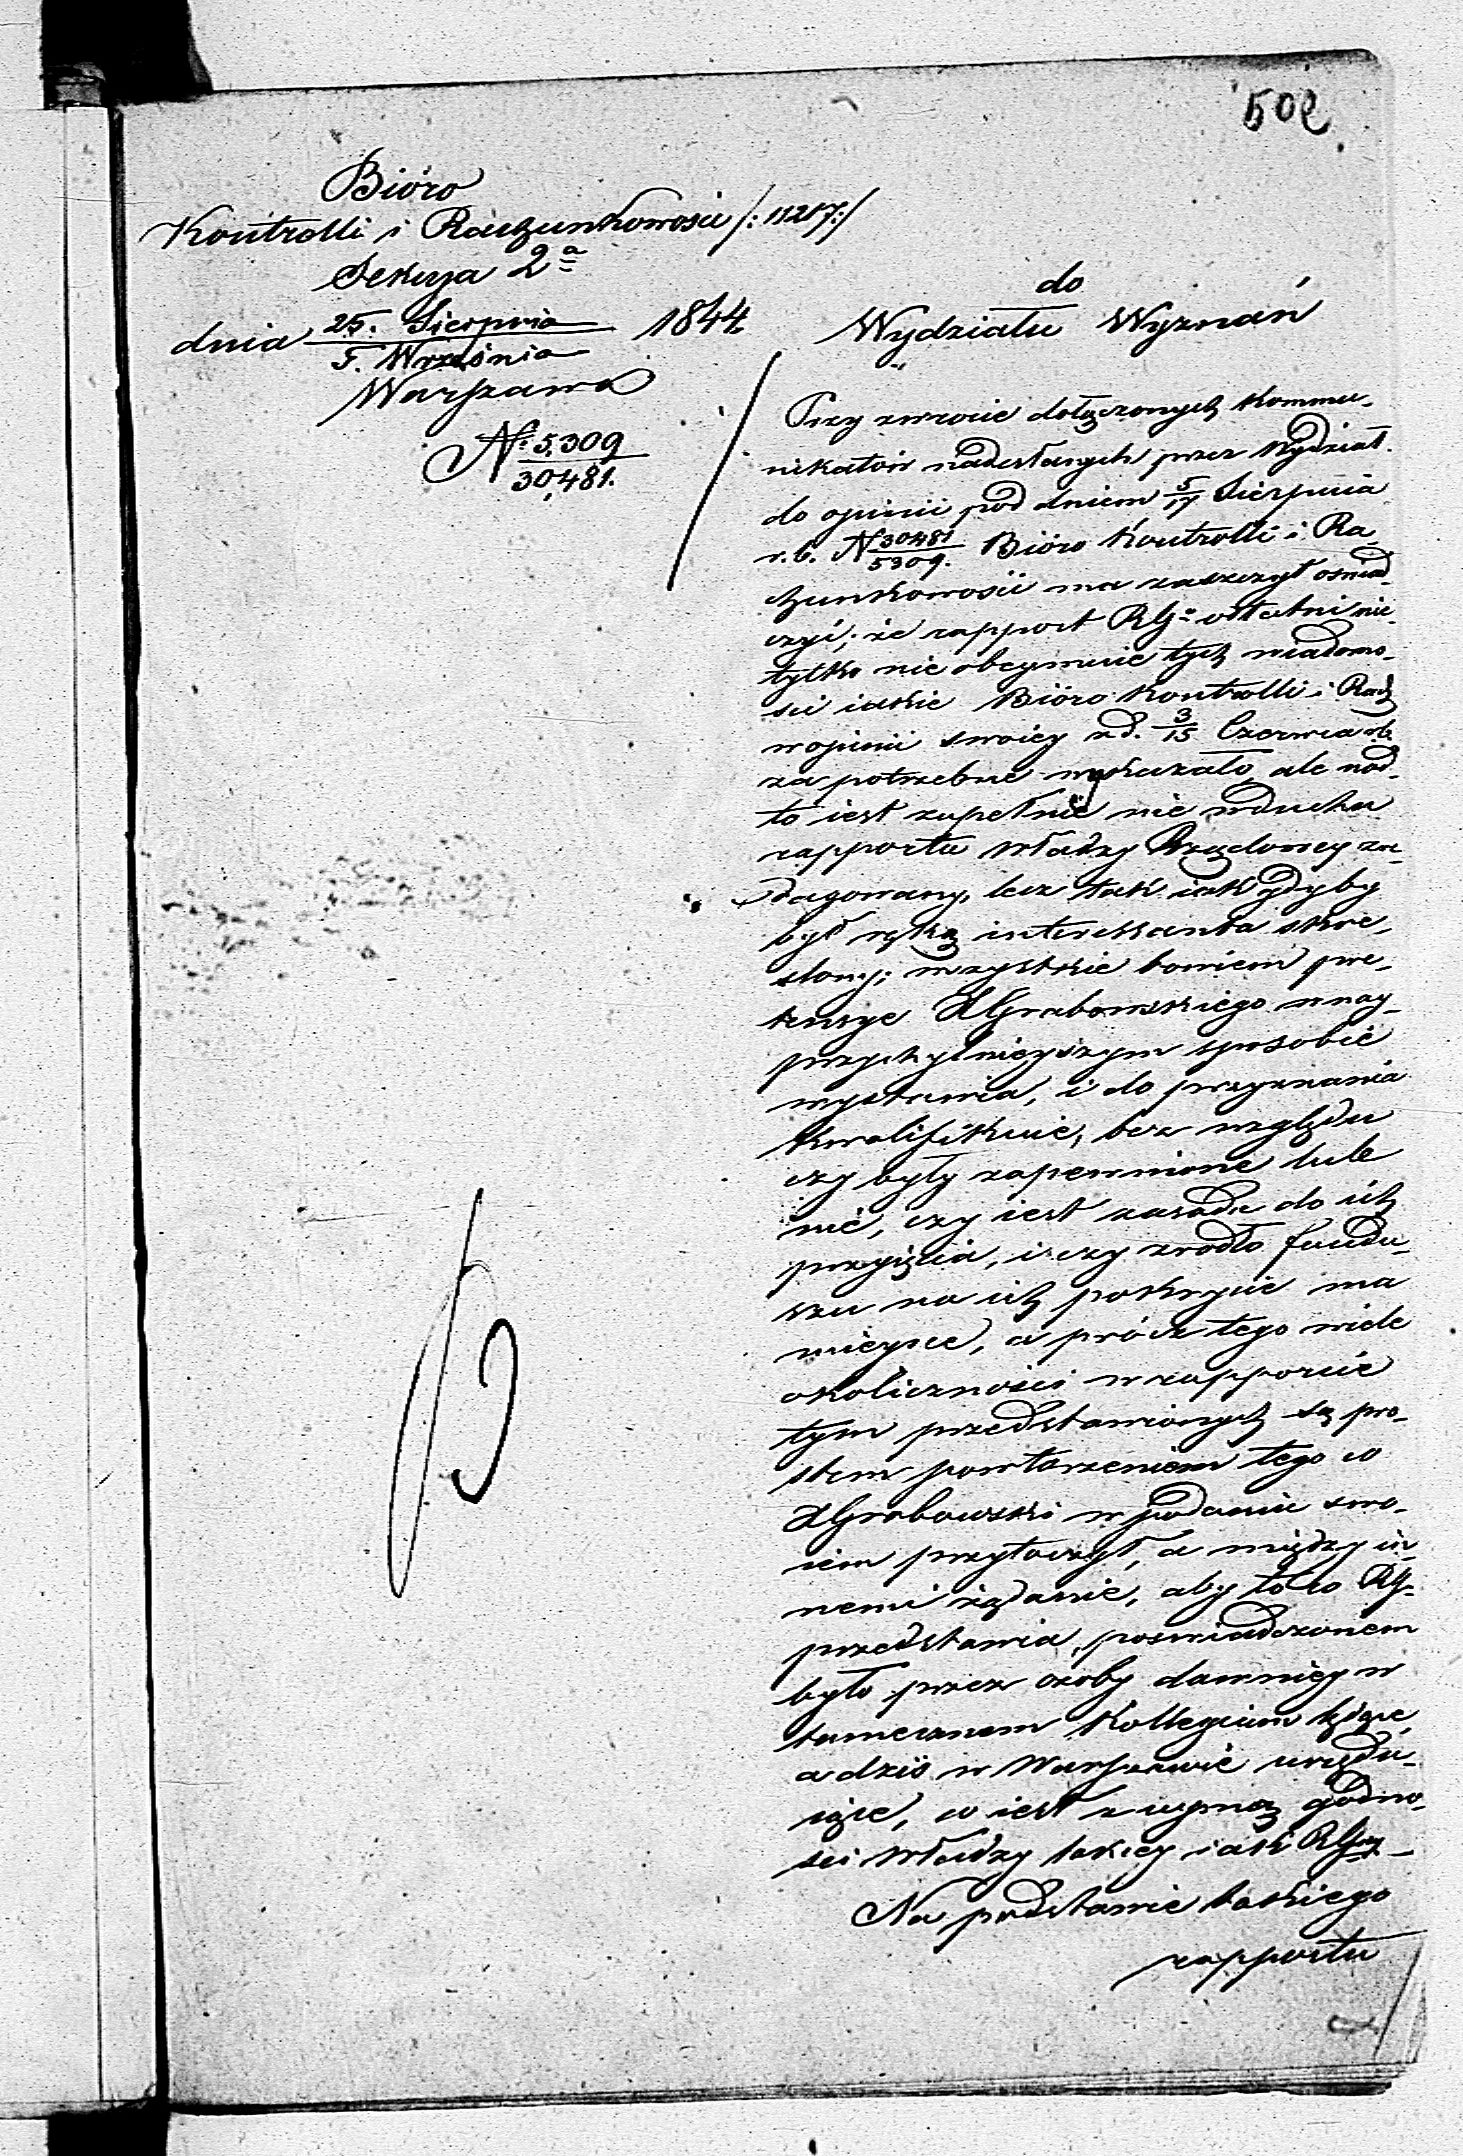 502
Bióro
Kontrolli i Rachunkowości /: 11217 :/
Sekcya 2a
dnia 25. Sierpnia / 5. Września 1844.
Warszawa
No 5,309 / 30,481.
do
Wydziału Wyznań
Przy zwrocie dołączonych kommu-
nikatów nadesłanych przez Wydział
do opinii pod dniem 5/17 Sierpnia
r. b. N 30481/5309. Bióro Kontrolli i Ra-
chunkowości ma zaszczyt oświad-
czyć, że rapport RGo ostatni nie-
tylko nie obeymuie tych wiadomo-
ści iakie Bióro Kontrolli i Rach
w opinii swoiey z d. 3/15 Czerwca rb
za potrzebne wykazało, ale nad-
to iest zupełnie nie w duchu
rapportu Władzy Rządowey zre-
dagowany, lecz tak iak gdyby
był ręką interessanta skre-
slony; wszystkie bowiem pre-
tensye XGrabowskiego w nay-
przychylnieyszym sposobie
wystawia, i do przyznania
kwalifikuie, bez względu
czy były zapewnione lub
nie, czy iest zasada do ich
przyięcia, i czy zrodło fundu-
szu na ich pokrycie ma
mieysce, a prócz tego wiele
okoliczności w rapporcie
tym przedstawionych są pro-
stem powtorzeniem tego co
XGrabowski w podaniu swo-
iem przytoczył, a między in-
nemi żądanie, aby to co RG
przedstawia, poswiadczonem
było przez osoby dawniey w
tamecznem Kollegium będące,
a dziś w Warszawie urzędu-
iące, co iest z uymą godno-
ści Władzy takiey iak RGny
Na podstawie takiego
rapportu